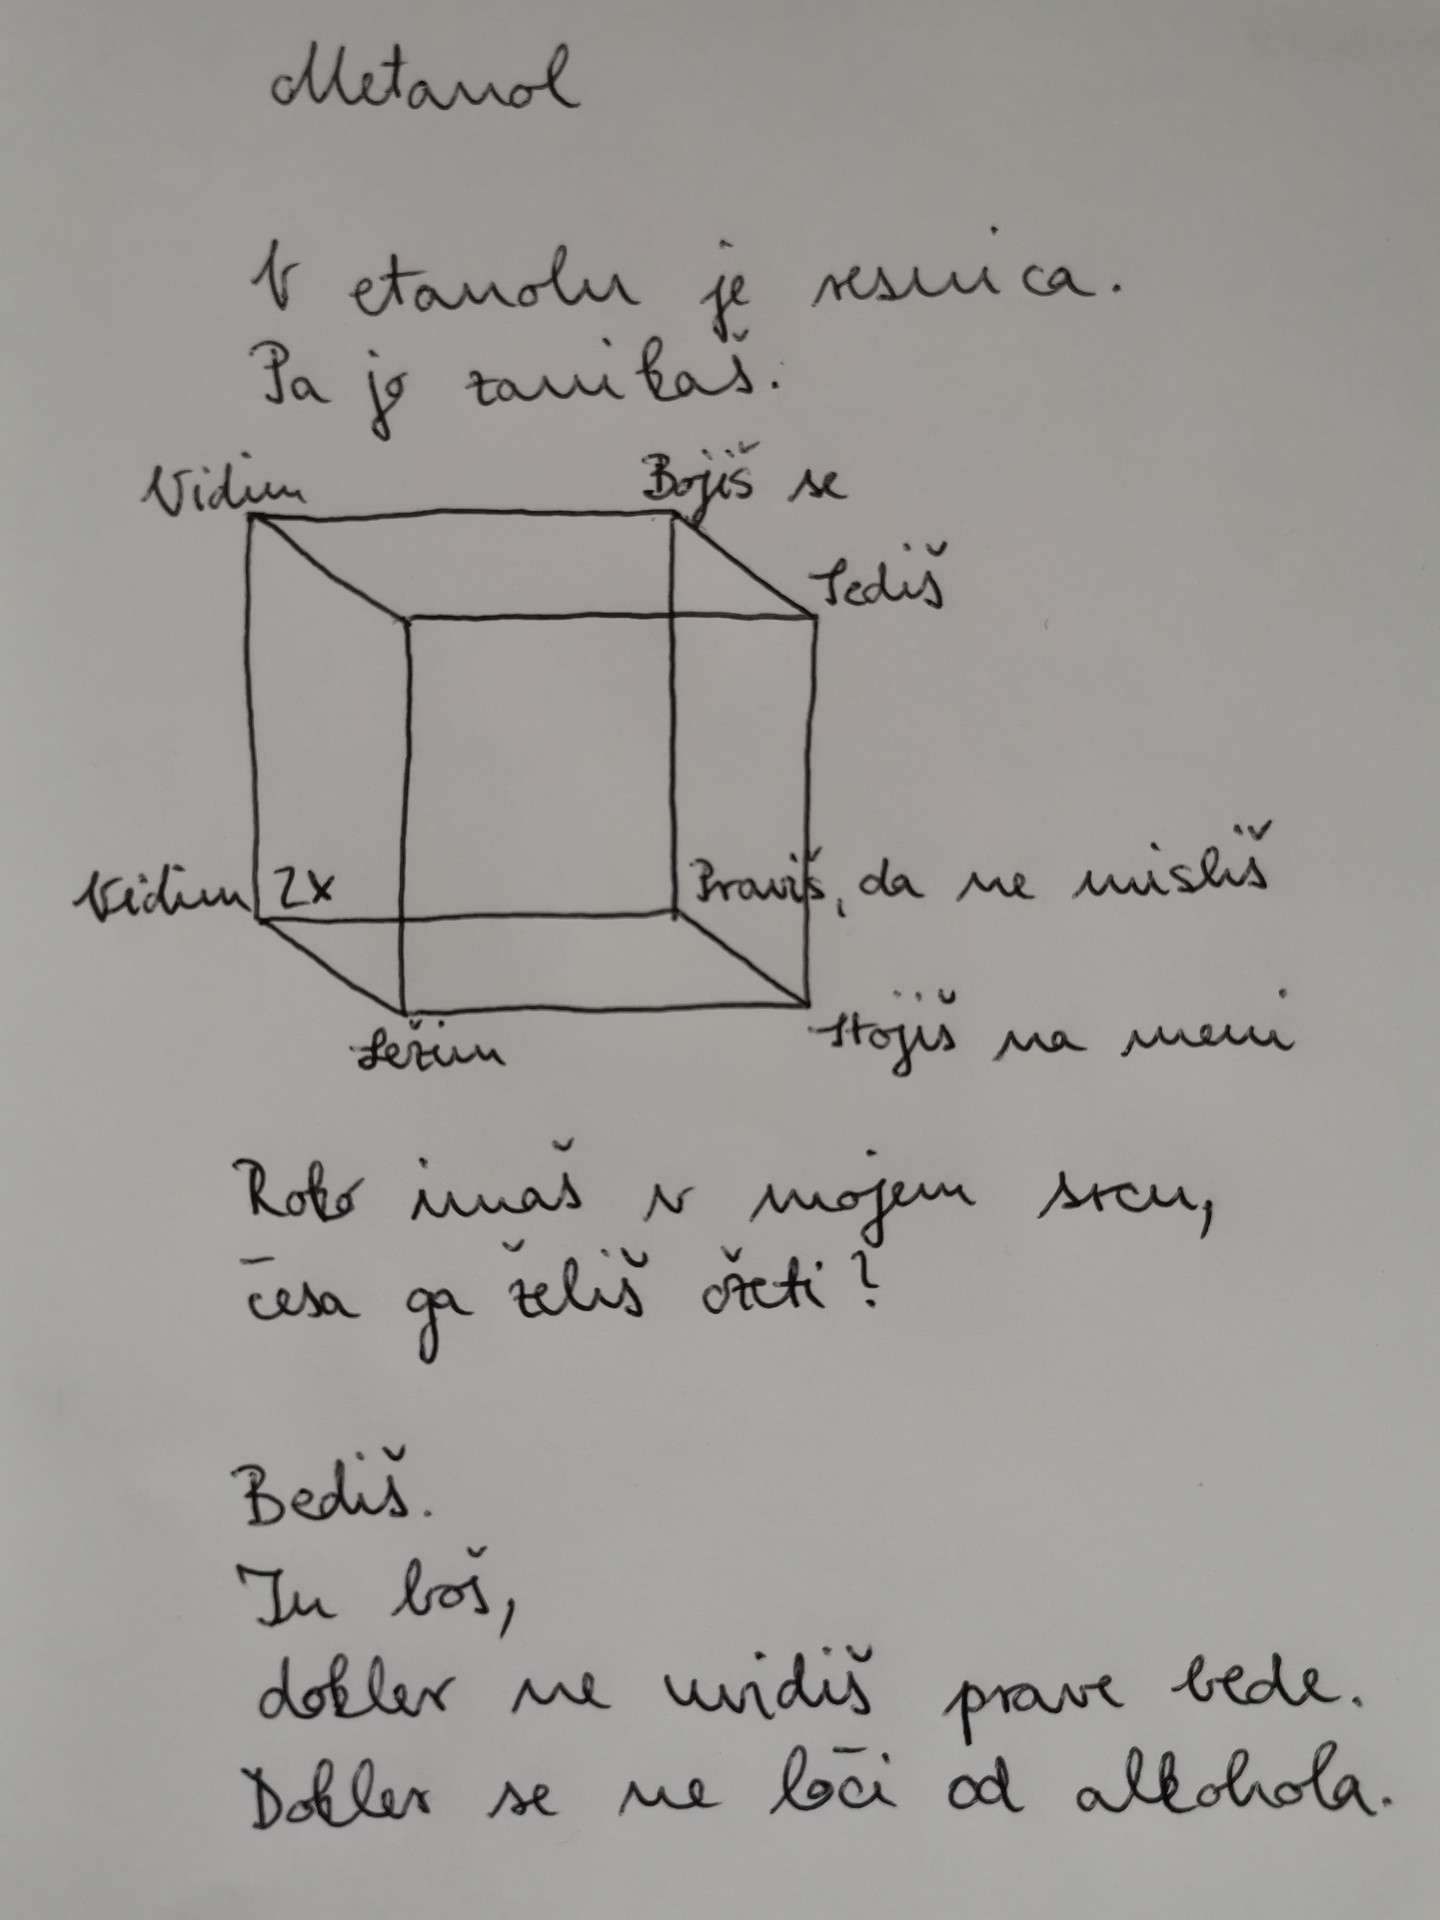 Metanol
V etanolu je resnica.
Pa jo zanikaš.
Vidim Bojiš se
Sediš
Vidim 2x Praviš, da ne misliš
Ležim Stojiš na meni
Roko imaš v mojem srcu,
česa ga želiš ožeti?
Bediš.
Tu boš,
dokler ne uvidiš prave bede.
Dokler se ne loči od alkohola.